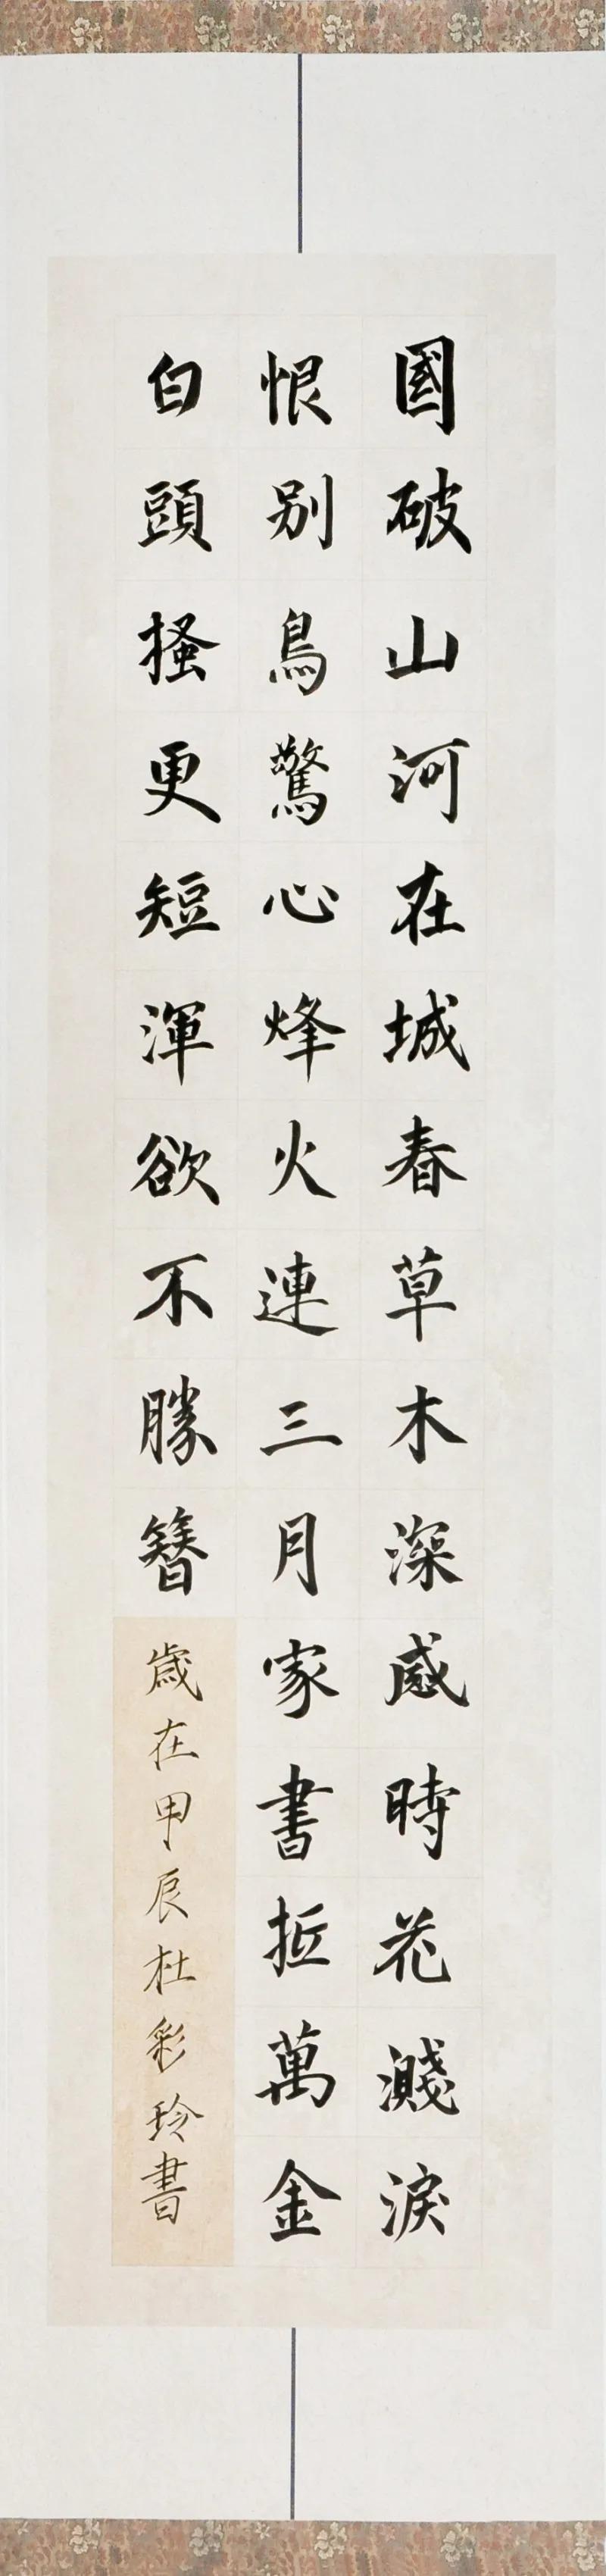 國破山河在城春草木深感時花濺淚
恨別鳥驚心烽火連三月家書抵萬金
白頭搔更短渾欲不勝簪
歲在甲辰杜彩玲書